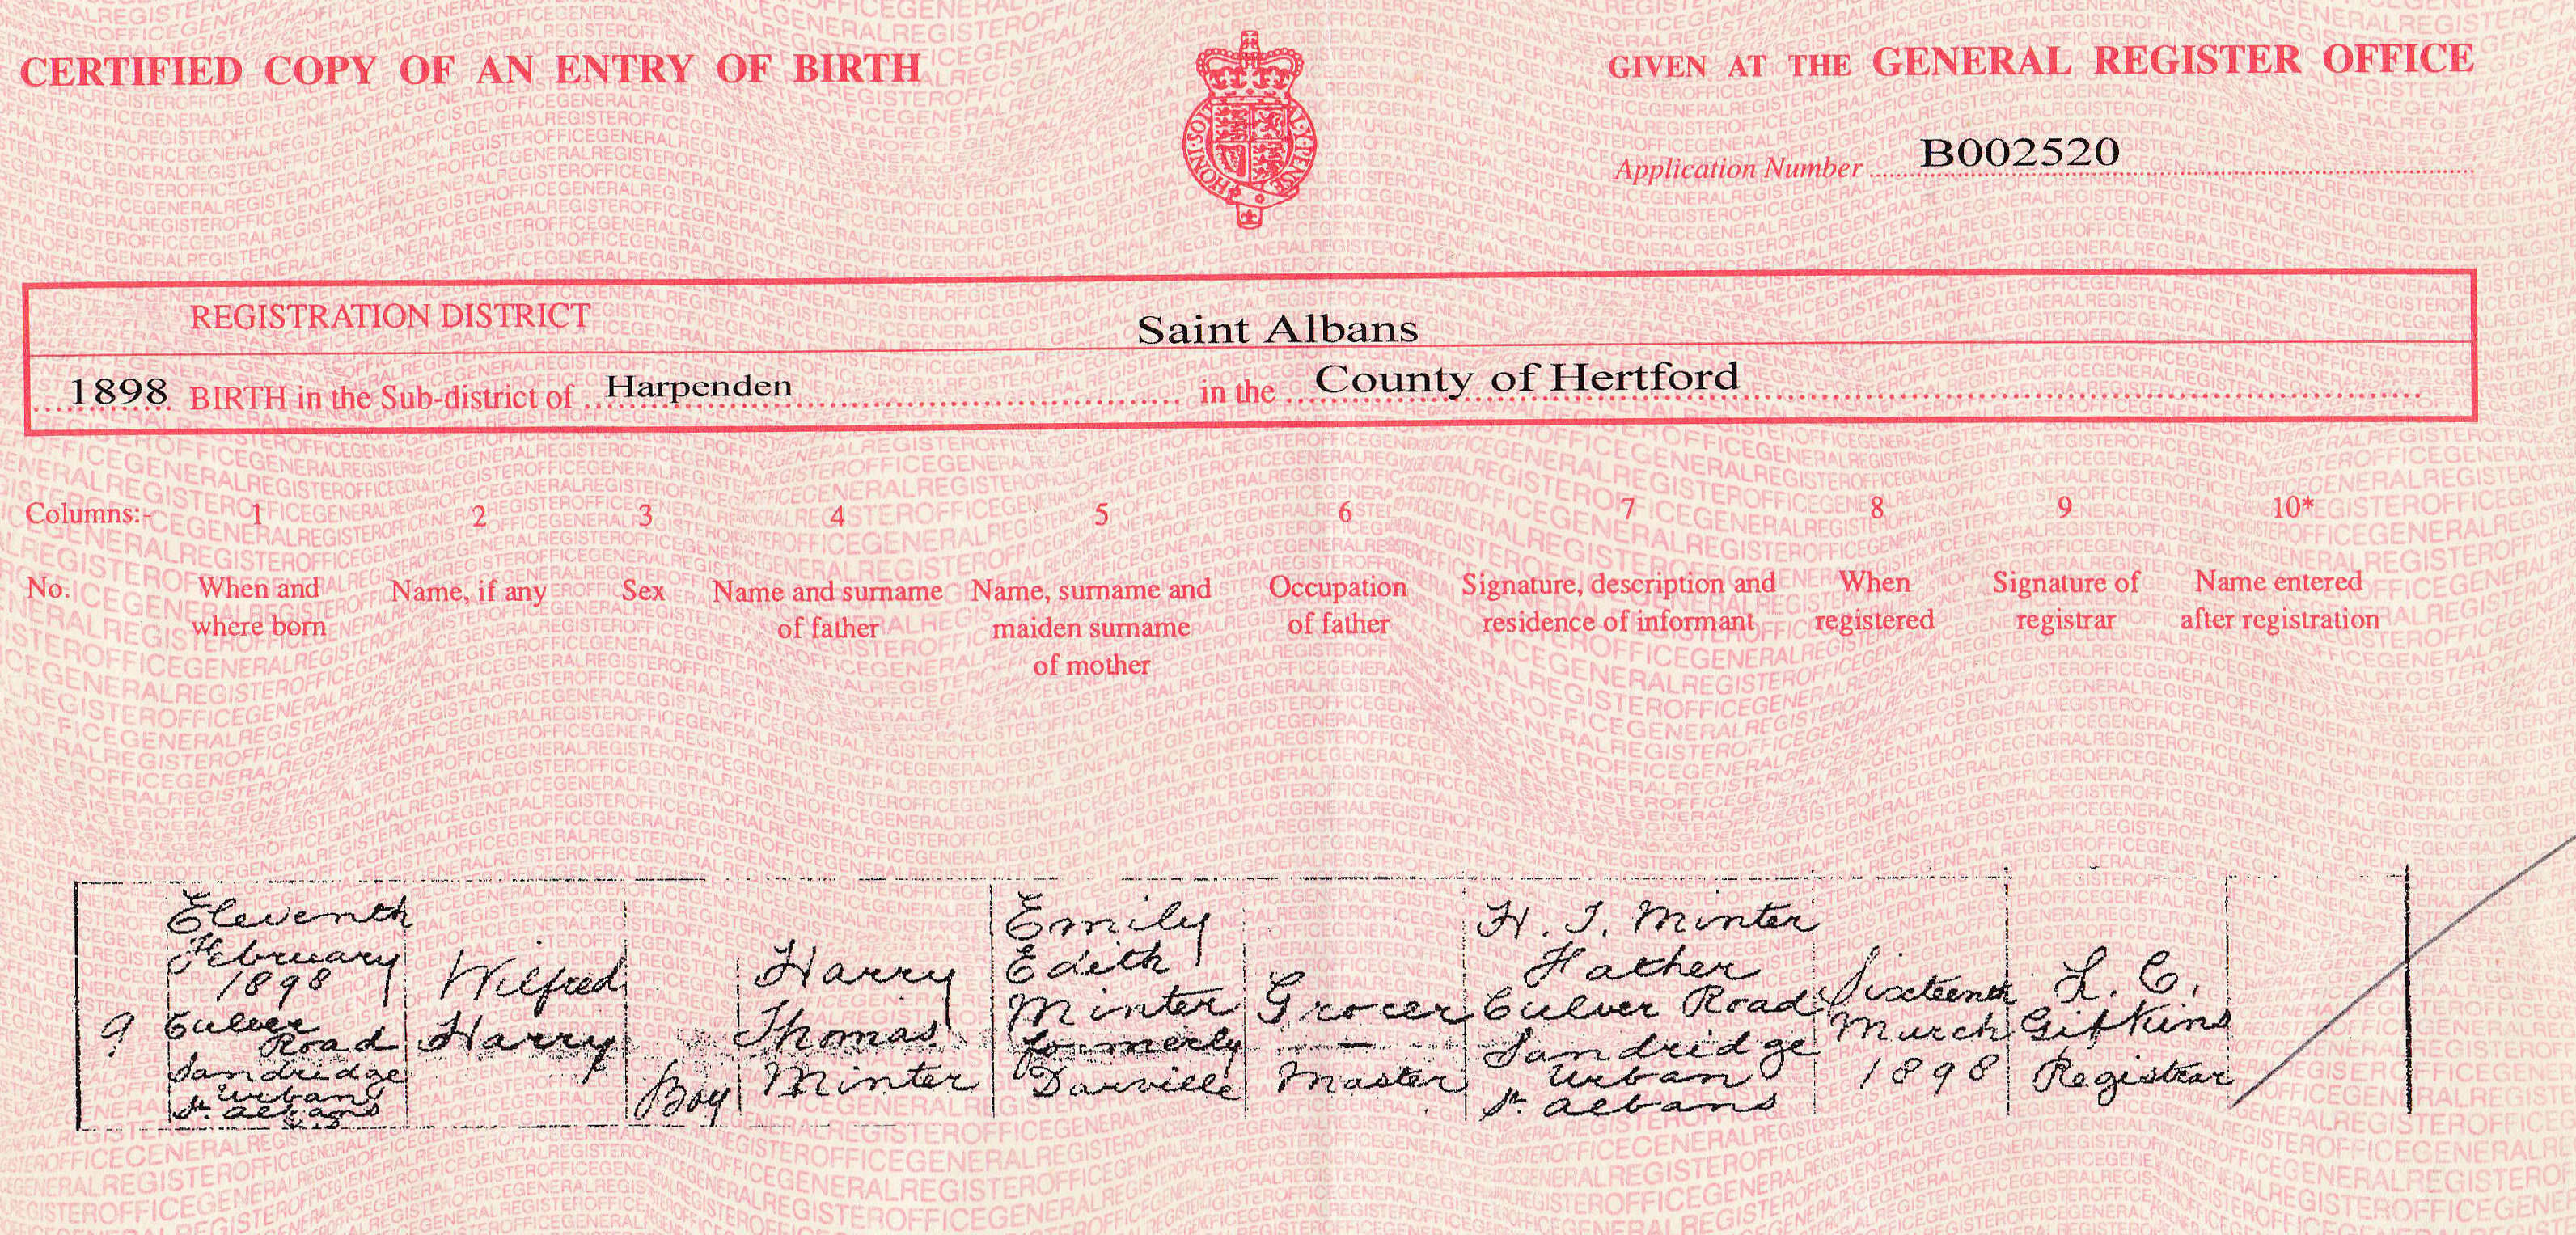 CERTIFIED COPY OF AN ENTRY OF BIRTH
GIVEN AT THE GENERAL REGISTER OFFICE
HONI·SOIT
MAL·Y·PENSE
Application Number B002520
REGISTRATION DISTRICT Saint Albans
1898 BIRTH in the Sub-district of Harpenden in the County of Hertford
Columns:- 1 2 3 4 5 6 7 8 9 10*
No.
When and
where born
Name, if any
Sex
Name and surname
of father
Name, surname and
maiden surname
of mother
Occupation
of father
Signature, description and
residence of informant
When
registered
Signature of
registrar
Name entered
after registration
9
Eleventh
February
1898
Culver
Road
Sandridge
Urban
St. Albans
Wilfred
Harry
Boy
Harry
Thomas
Minter
Emily
Edith
Minter
formerly
Darville
Grocer
—
Master
H. T. Minter
Father
Culver Road
Sandridge
Urban
St. Albans
Sixteenth
March
1898
L. C.
Gifkins
Registrar